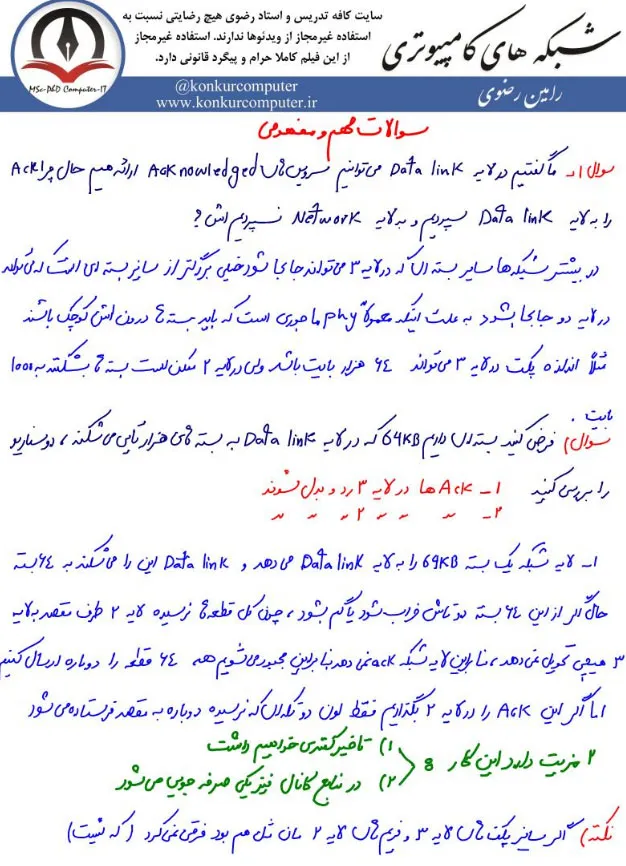 سایت کافه تدریس و استاد رضوی هیچ رضایتی نسبت به
استفاده غیرمجاز از ویدئوها ندارند. استفاده غیرمجاز
از این فیلم کاملا حرام و پیگرد قانونی دارد.
شبکه های کامپیوتری
MSc-PhD Computer-IT
@konkurcomputer
www.konkurcomputer.ir
رامین رضوی
سوالات مهم و مفهومی
سوال ۱ـ ما گفتیم در لایه Data link می‌توانیم سرویس های Acknowledged ارائه دهیم حال چرا Ack
را به لایه Data link سپردیم و به لایه Network نسپردیم اش ؟
در بیشتر شبکه ها سایز بسته ای که در لایه ۳ می تواند جابجا شود خیلی بزرگتر از سایز بسته ای است که می تواند
در لایه دو جابجا بشود به علت اینکه معمولاً phy ما جوری است که باید بسته ها درون اش کوچک باشند
مثلاً اندازه پکت در لایه ۳ می تواند ۶۴ هزار بایت باشد ولی در لایه ۲ ممکن است بسته ها بشکنند به ۱۰۰۰
بایت .
سوال) فرض کنید بسته ای داریم 64KB که در لایه Data link به بسته های هزار تایی می شکند ، دو سناریو
را بررسی کنید ۱ـ Ack ها در لایه ۳ رد و بدل شوند
۲ـ ״ ״ ״ ۲ ״ ״ ״
۱ـ لایه شبکه یک بسته 64KB را به لایه Data link می دهد و Data link این را می شکند به ۶۴ بسته
حال اگر از این ۶۴ بسته دو تاش خراب شود یا گم بشود ، چون کل قطعه ها نرسیده لایه ۲ طرف مقصد به لایه
۳ هیچی تحویل نمی دهد ، بنابراین لایه شبکه ack نمی دهد بنابراین مجبور می شویم همه ۶۴ قطعه را دوباره ارسال کنیم
اما اگر این Ack را در لایه ۲ بگذاریم فقط اون دو تکه ای که نرسیده دوباره به مقصد فرستاده می شود
۲ مزیت دارد این کار : ۱) تاخیر کمتری خواهیم داشت
۲) در منابع کانال فیزیکی صرفه جویی می شود
نکته) اگر سایز پکت های لایه ۳ و فریم های لایه ۲ مان مثل هم بود فرقی نمی کرد ( که نیست)